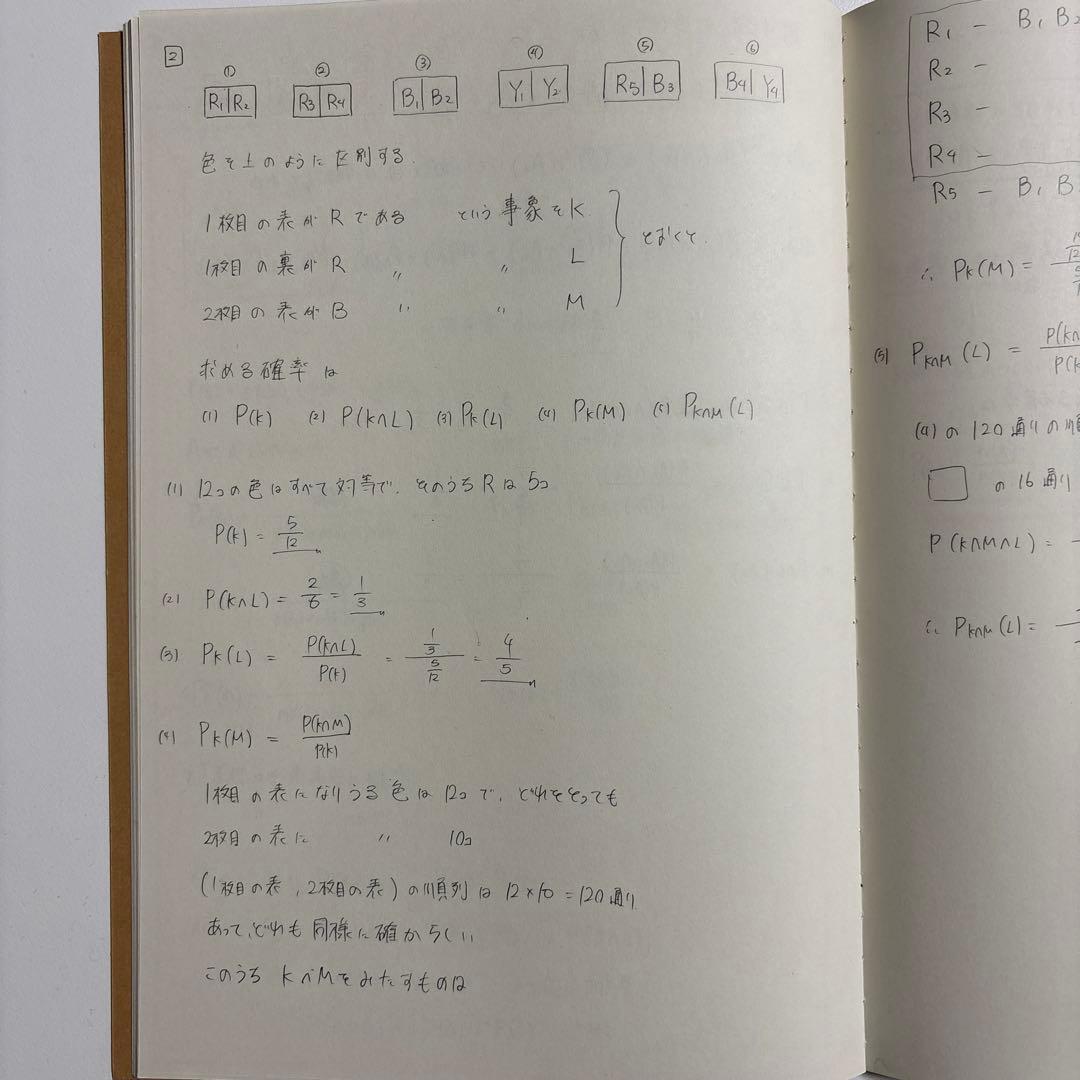 2
① ② ③ ④ ⑤ ⑥
R₁ R₂ R₃ R₄ B₁ B₂ Y₁ Y₂ R₅ B₃ B₄ Y₄
色を上のように区別する.
1枚目の表がRである という事象をK
1枚目の裏がR 〃 〃 L
2枚目の表がB 〃 〃 M
とおくと.
求める確率は
(1) P(K) (2) P(K∩L) (3) PK(L) (4) PK(M) (5) PK∩M(L)
(1) 12コの色はすべて対等で、そのうちRは5コ
P(K) = 5/12
(2) P(K∩L) = 2/6 = 1/3
(3) PK(L) = P(K∩L)/P(K) = (1/3)/(5/12) = 4/5
(4) PK(M) = P(K∩M)/P(K)
1枚目の表になりうる色は12コで、どれをとっても
2枚目の表に 〃 10コ
(1枚目の表, 2枚目の表)の順列は 12×10 = 120通り
あって、どれも同様に確からしい
このうち K∩Mをみたすものは
R₁ - B₁ B₂
R₂ -
R₃ -
R₄ -
R₅ - B₁ B
∴ PK(M) =
(5) PK∩M(L) =
(4)の120通りの
の16通り
P(K∩M∩L) =
∴ PK∩M(L) =